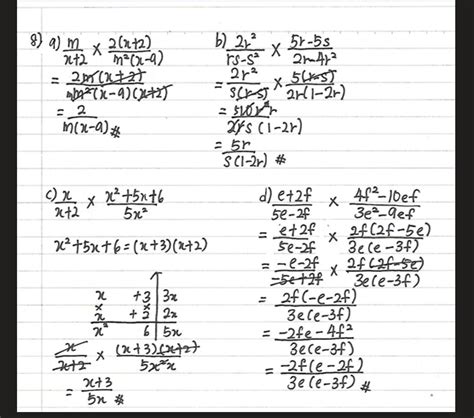 8) a) m/x+2 × 2(x+2)/m²(x-9)
= 2m(x+2)/m²(x-9)(x+2)
= 2/m(x-9) #
b) 2r²/rs-s² × 5r-5s/2r-4r²
= 2r²/s(r-s) × 5(r-s)/2r(1-2r)
= 10r²/2rs(1-2r)
= 5r/s(1-2r) #
c) x/x+2 × x²+5x+6/5x²
x²+5x+6=(x+3)(x+2)
x +3 3x
x +2 2x
x² 6 5x
x/x+2 × (x+3)(x+2)/5x²
= x+3/5x #
d) e+2f/5e-2f × 4f²-10ef/3e²-9ef
= e+2f/5e-2f × 2f(2f-5e)/3e(e-3f)
= -e-2f/-5e+2f × 2f(2f-5e)/3e(e-3f)
= 2f(-e-2f)/3e(e-3f)
= -2fe-4f²/3e(e-3f)
= -2f(e-2f)/3e(e-3f) #